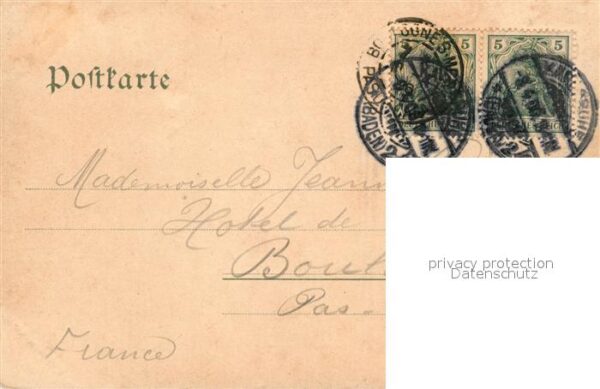 Postkarte
5 5
(BADEN) 2
Mademoiselle Jean
Hotel de
Boul
Pas-
France
privacy protection
Datenschutz